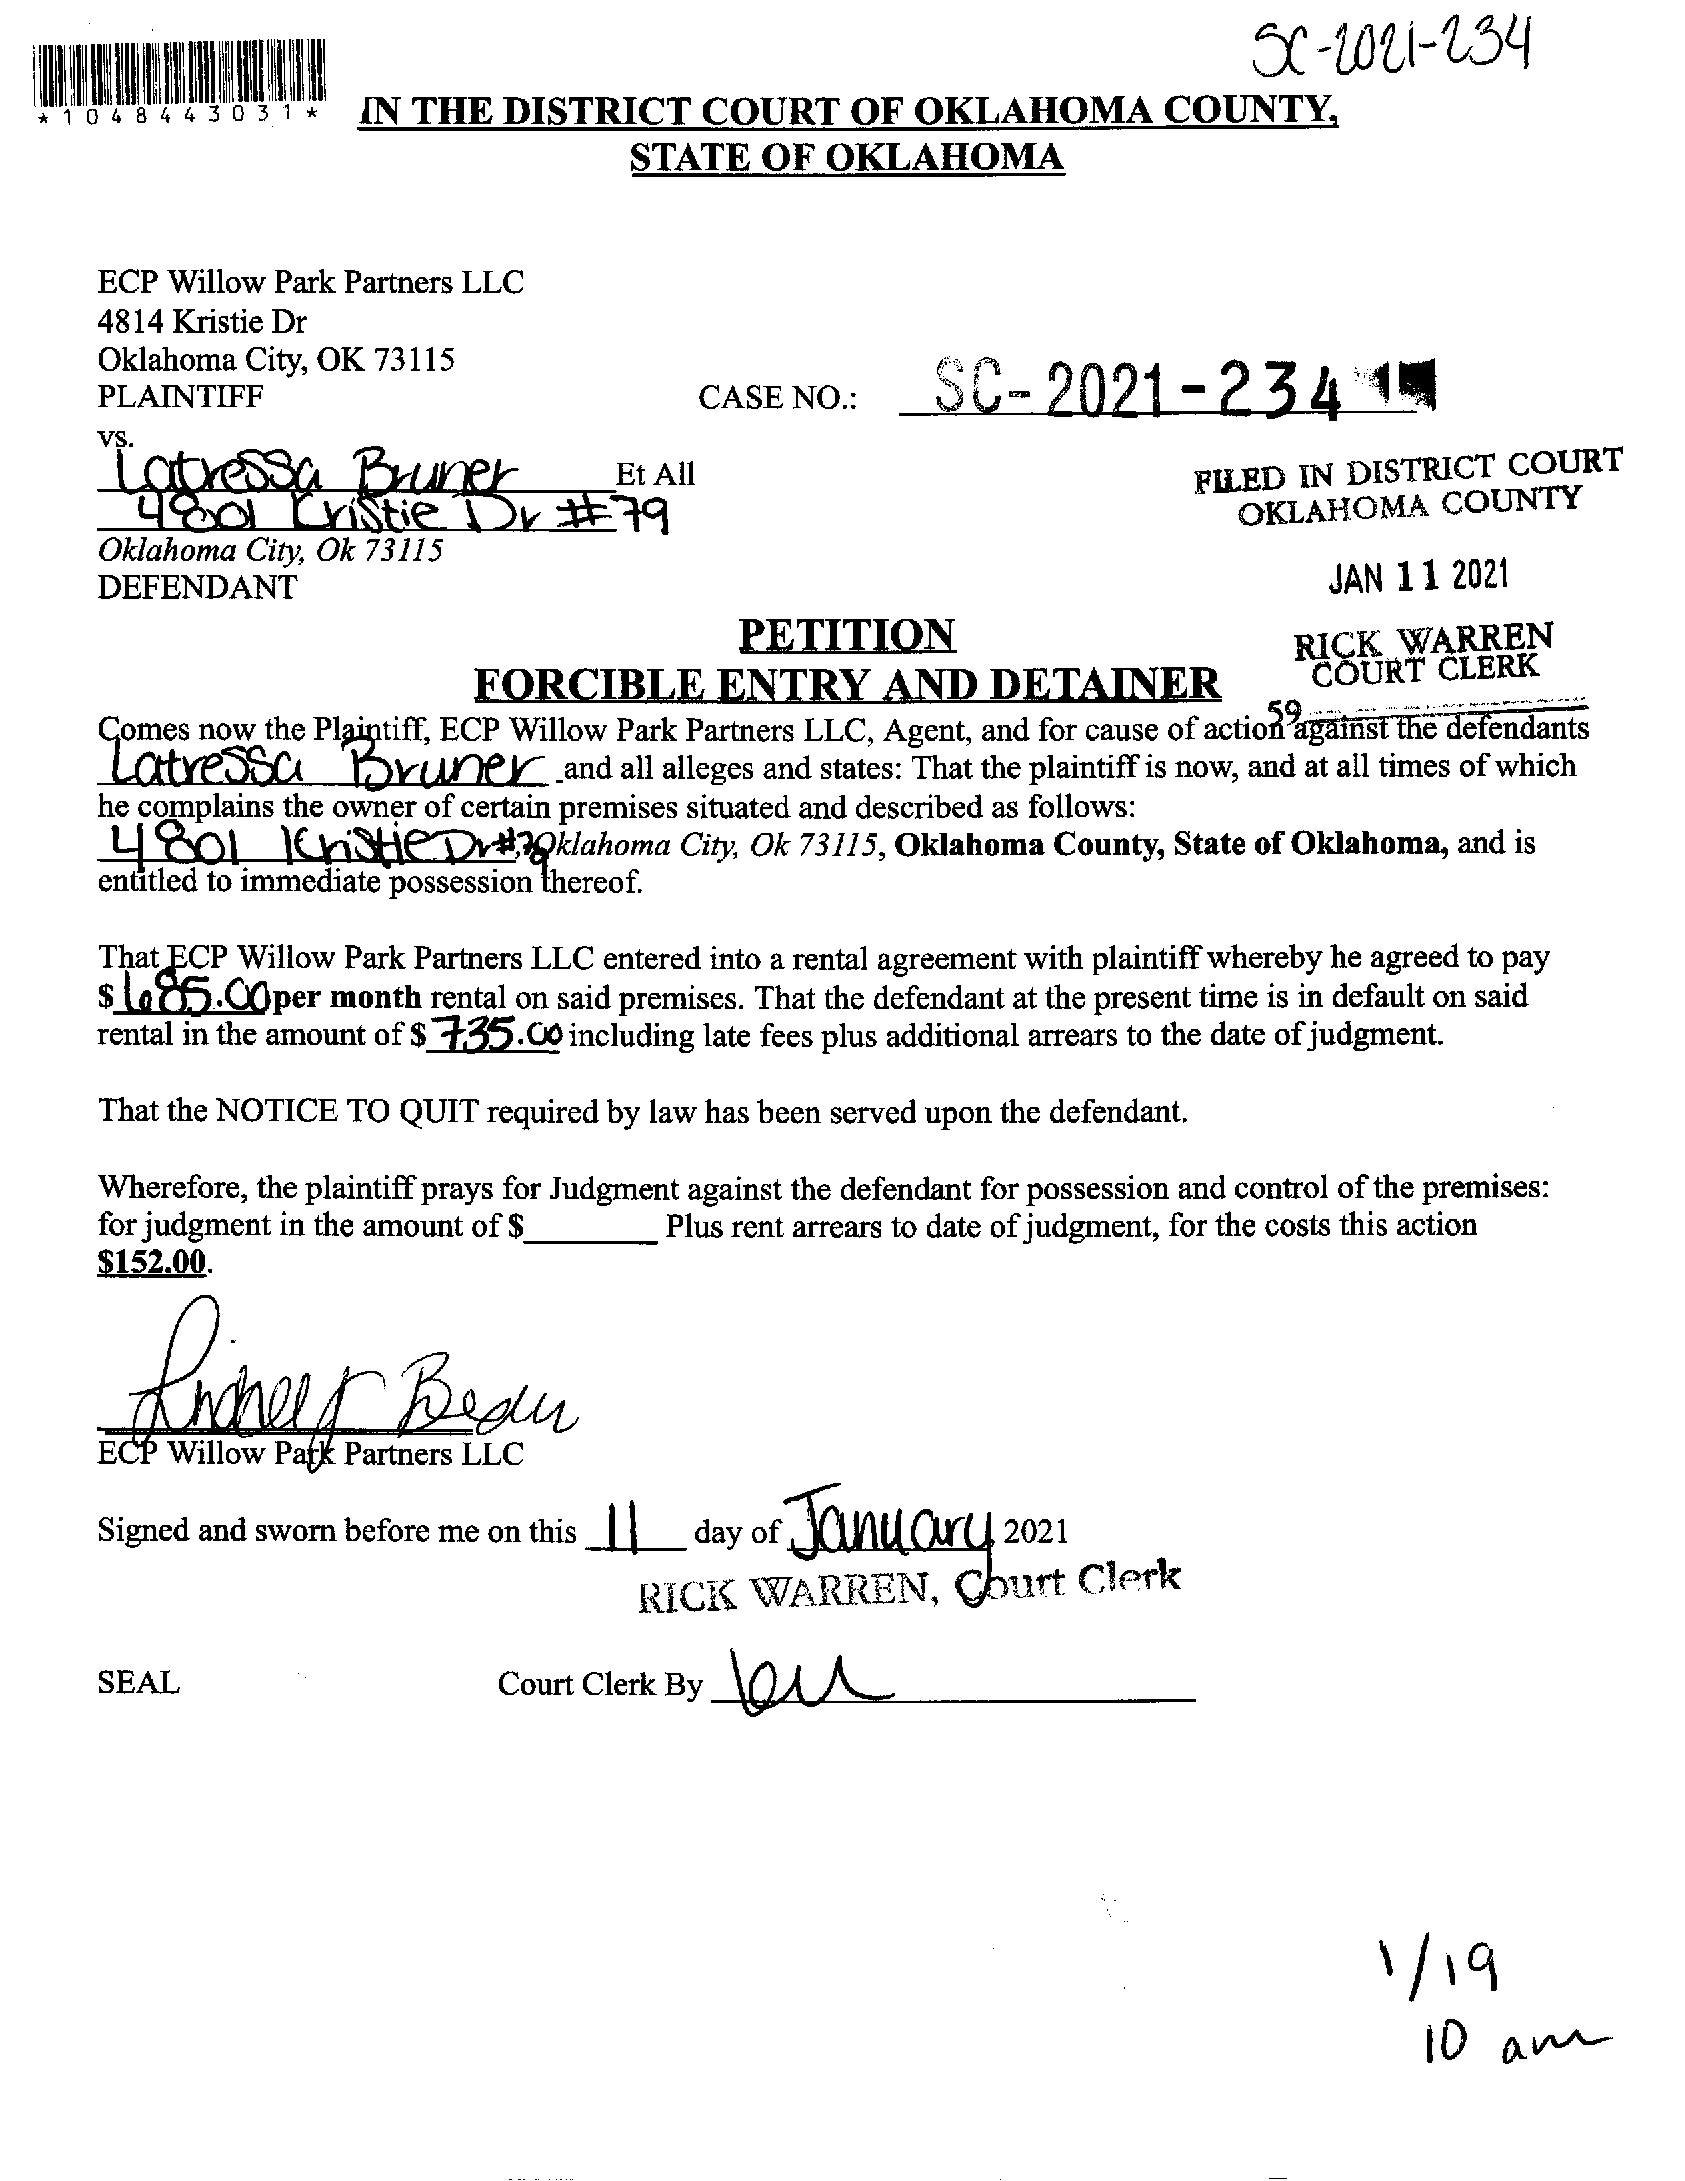 SC-2021-234
*1048443031*
IN THE DISTRICT COURT OF OKLAHOMA COUNTY,
STATE OF OKLAHOMA
ECP Willow Park Partners LLC
4814 Kristie Dr
Oklahoma City, OK 73115
PLAINTIFF
CASE NO.: SC-2021-234
vs.
Latressa Bruner Et All
4801 Kristie Dr #79
Oklahoma City, Ok 73115
DEFENDANT
FILED IN DISTRICT COURT
OKLAHOMA COUNTY
JAN 11 2021
RICK WARREN
COURT CLERK
59
PETITION
FORCIBLE ENTRY AND DETAINER
Comes now the Plaintiff, ECP Willow Park Partners LLC, Agent, and for cause of action against the defendants
Latressa Bruner and all alleges and states: That the plaintiff is now, and at all times of which
he complains the owner of certain premises situated and described as follows:
4801 Kristie Dr #79 Oklahoma City, Ok 73115, Oklahoma County, State of Oklahoma, and is
entitled to immediate possession thereof.
That ECP Willow Park Partners LLC entered into a rental agreement with plaintiff whereby he agreed to pay
$ 685.00 per month rental on said premises. That the defendant at the present time is in default on said
rental in the amount of $ 735.00 including late fees plus additional arrears to the date of judgment.
That the NOTICE TO QUIT required by law has been served upon the defendant.
Wherefore, the plaintiff prays for Judgment against the defendant for possession and control of the premises:
for judgment in the amount of $________ Plus rent arrears to date of judgment, for the costs this action
$152.00.
ECP Willow Park Partners LLC
Signed and sworn before me on this 11 day of January 2021
RICK WARREN, Court Clerk
SEAL Court Clerk By
1/19
10 am